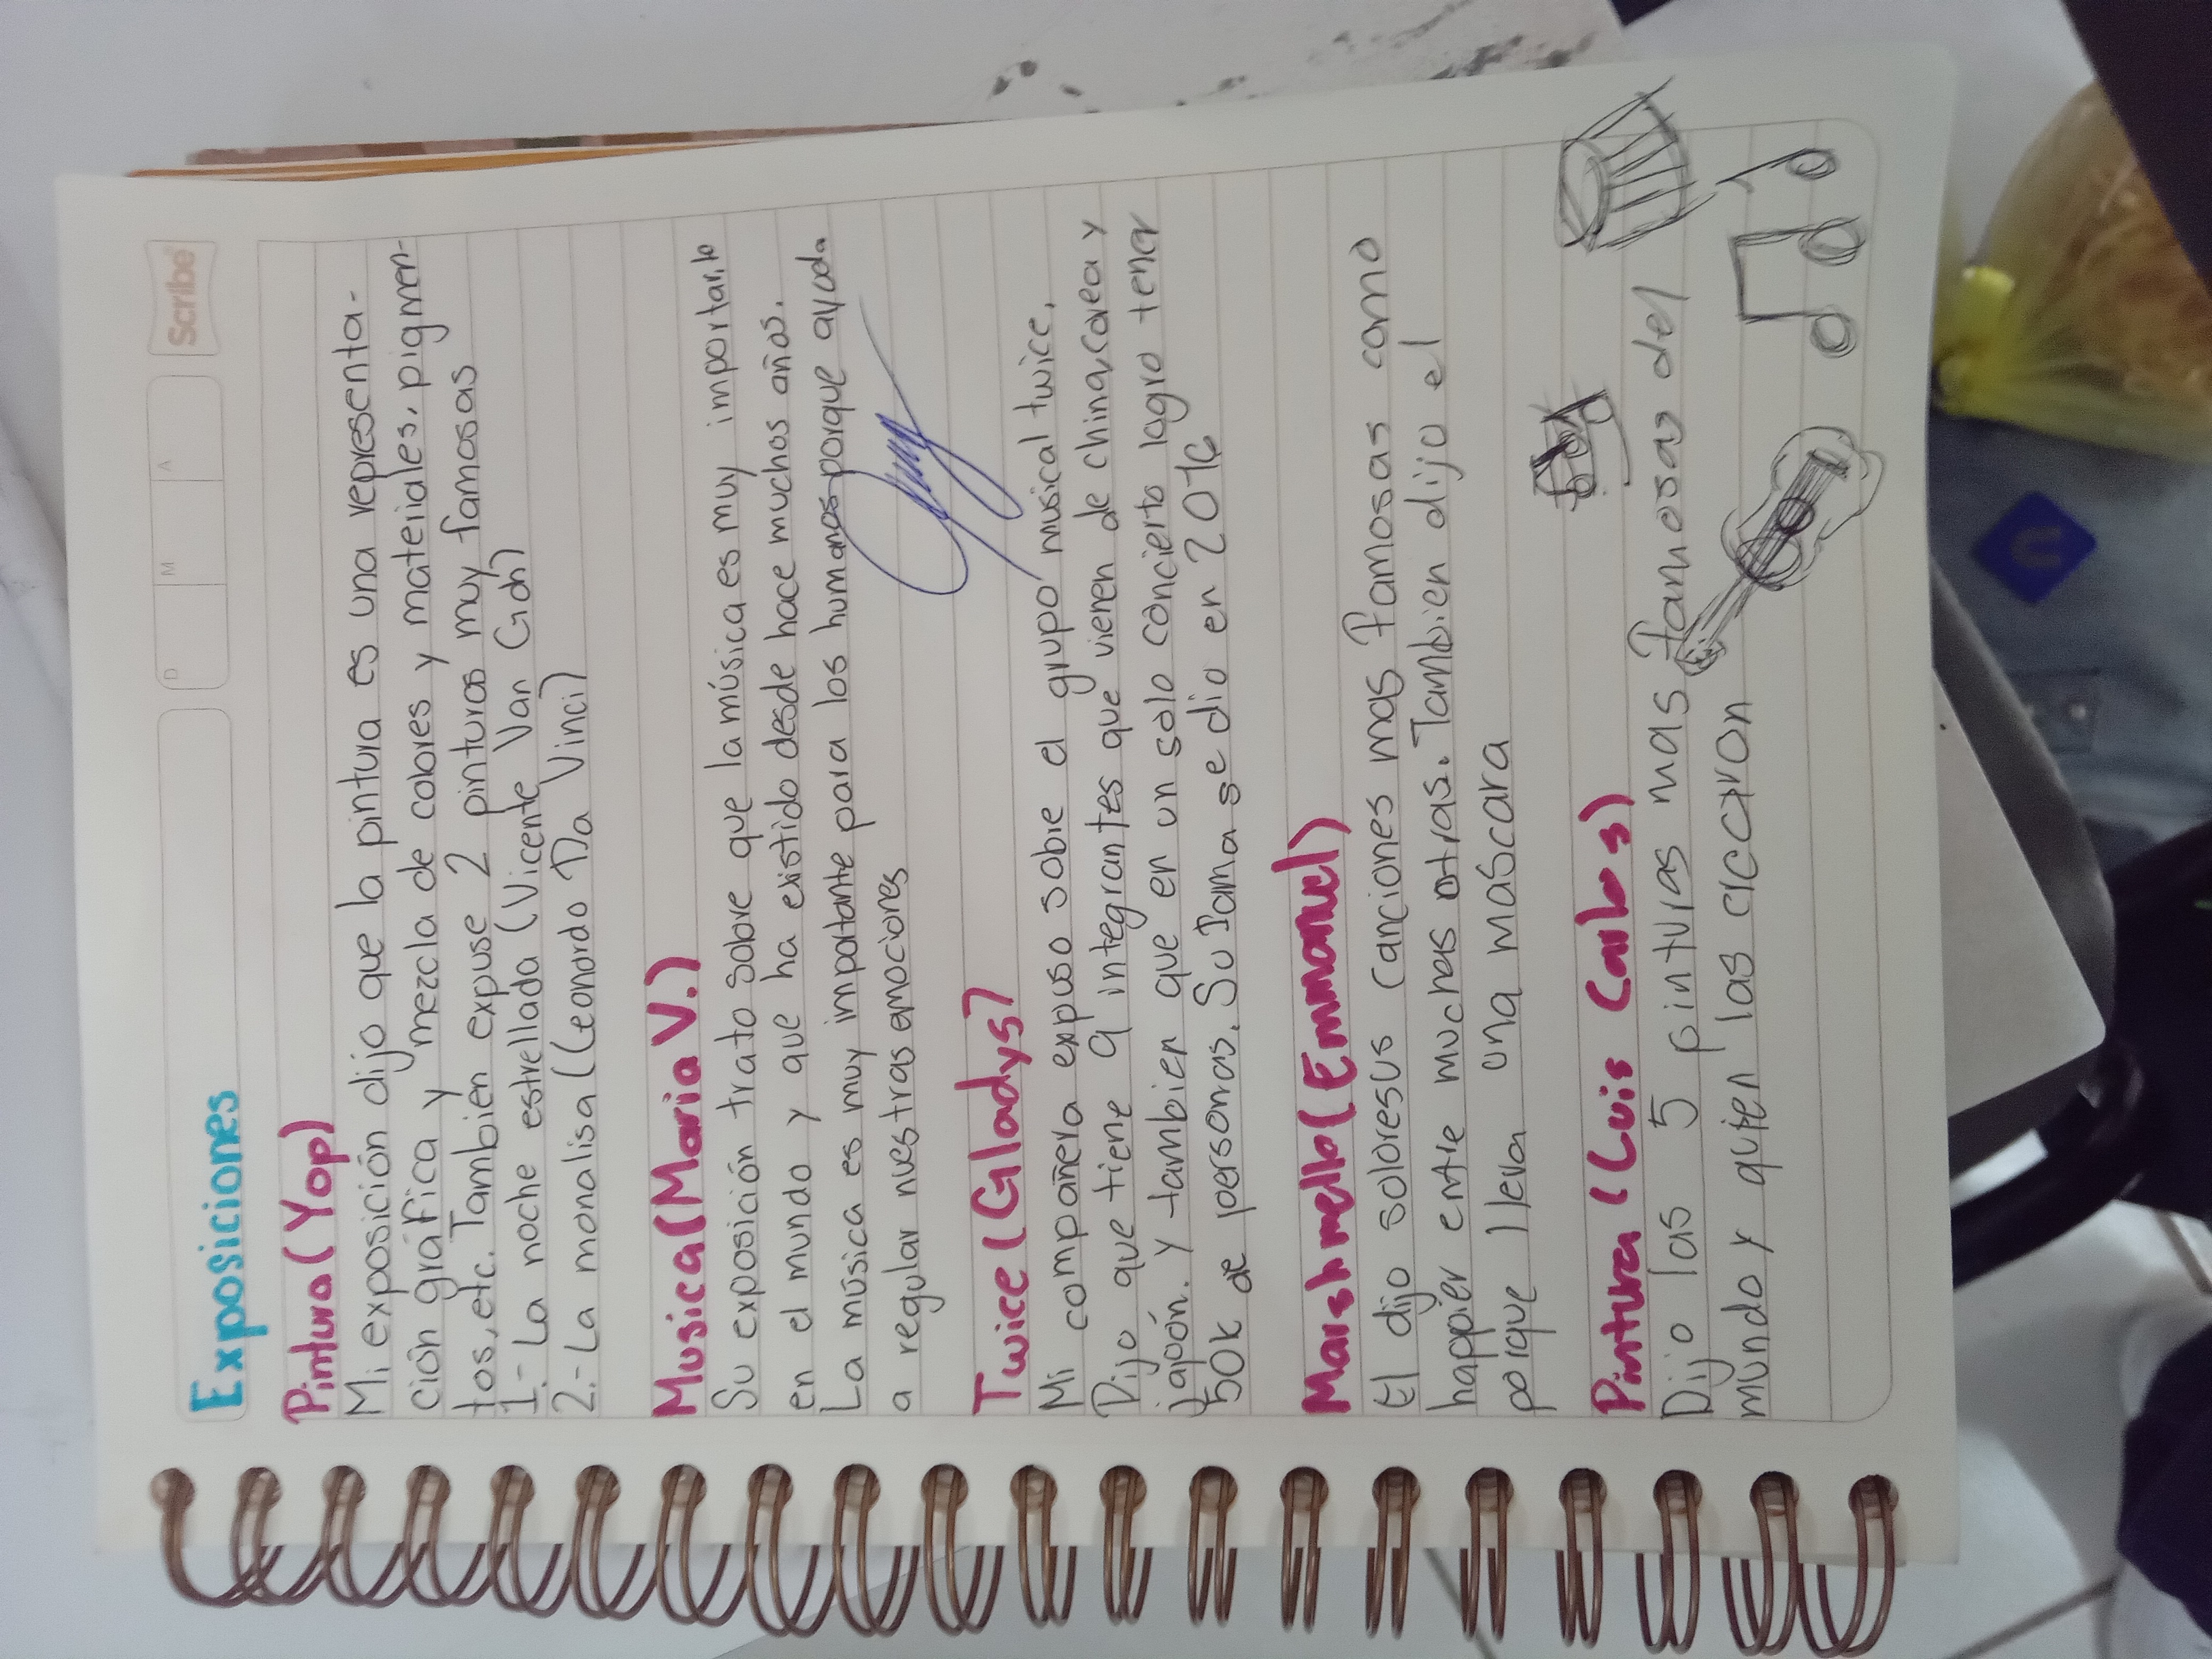 Scribe
D M A
Exposiciones
Pintura (Yop)
Mi exposición dijo que la pintura es una representa-
ción gráfica y mezcla de colores y materiales, pigmen-
tos, etc. Tambien expuse 2 pinturas muy famosas
1.- La noche estrellada (Vicente Van Goh)
2.- La monalisa (Leonardo Da Vinci)
Musica (Maria V.)
Su exposición trato sobre que la música es muy importar, lo
en el mundo y que ha existido desde hace muchos años.
La música es muy importante para los humanos porque ayuda
a regular nuestras emociones
Twice (Gladys)
Mi compañera expuso sobre el grupo musical twice.
Dijo que tiene 9 integrantes que vienen de china, corea y
japón. Y tambien que en un solo concierto logro tener
50k de personas. Su fama se dio en 2016
Marshmello (Emmanuel)
El dijo soloresus canciones mas famosas como
happier entre muchas otras. Tambien dijo el
porque lleva una mascara
Pintura (Luis Carlos)
Dijo las 5 pinturas mas famosas del
mundo y quien las crearon